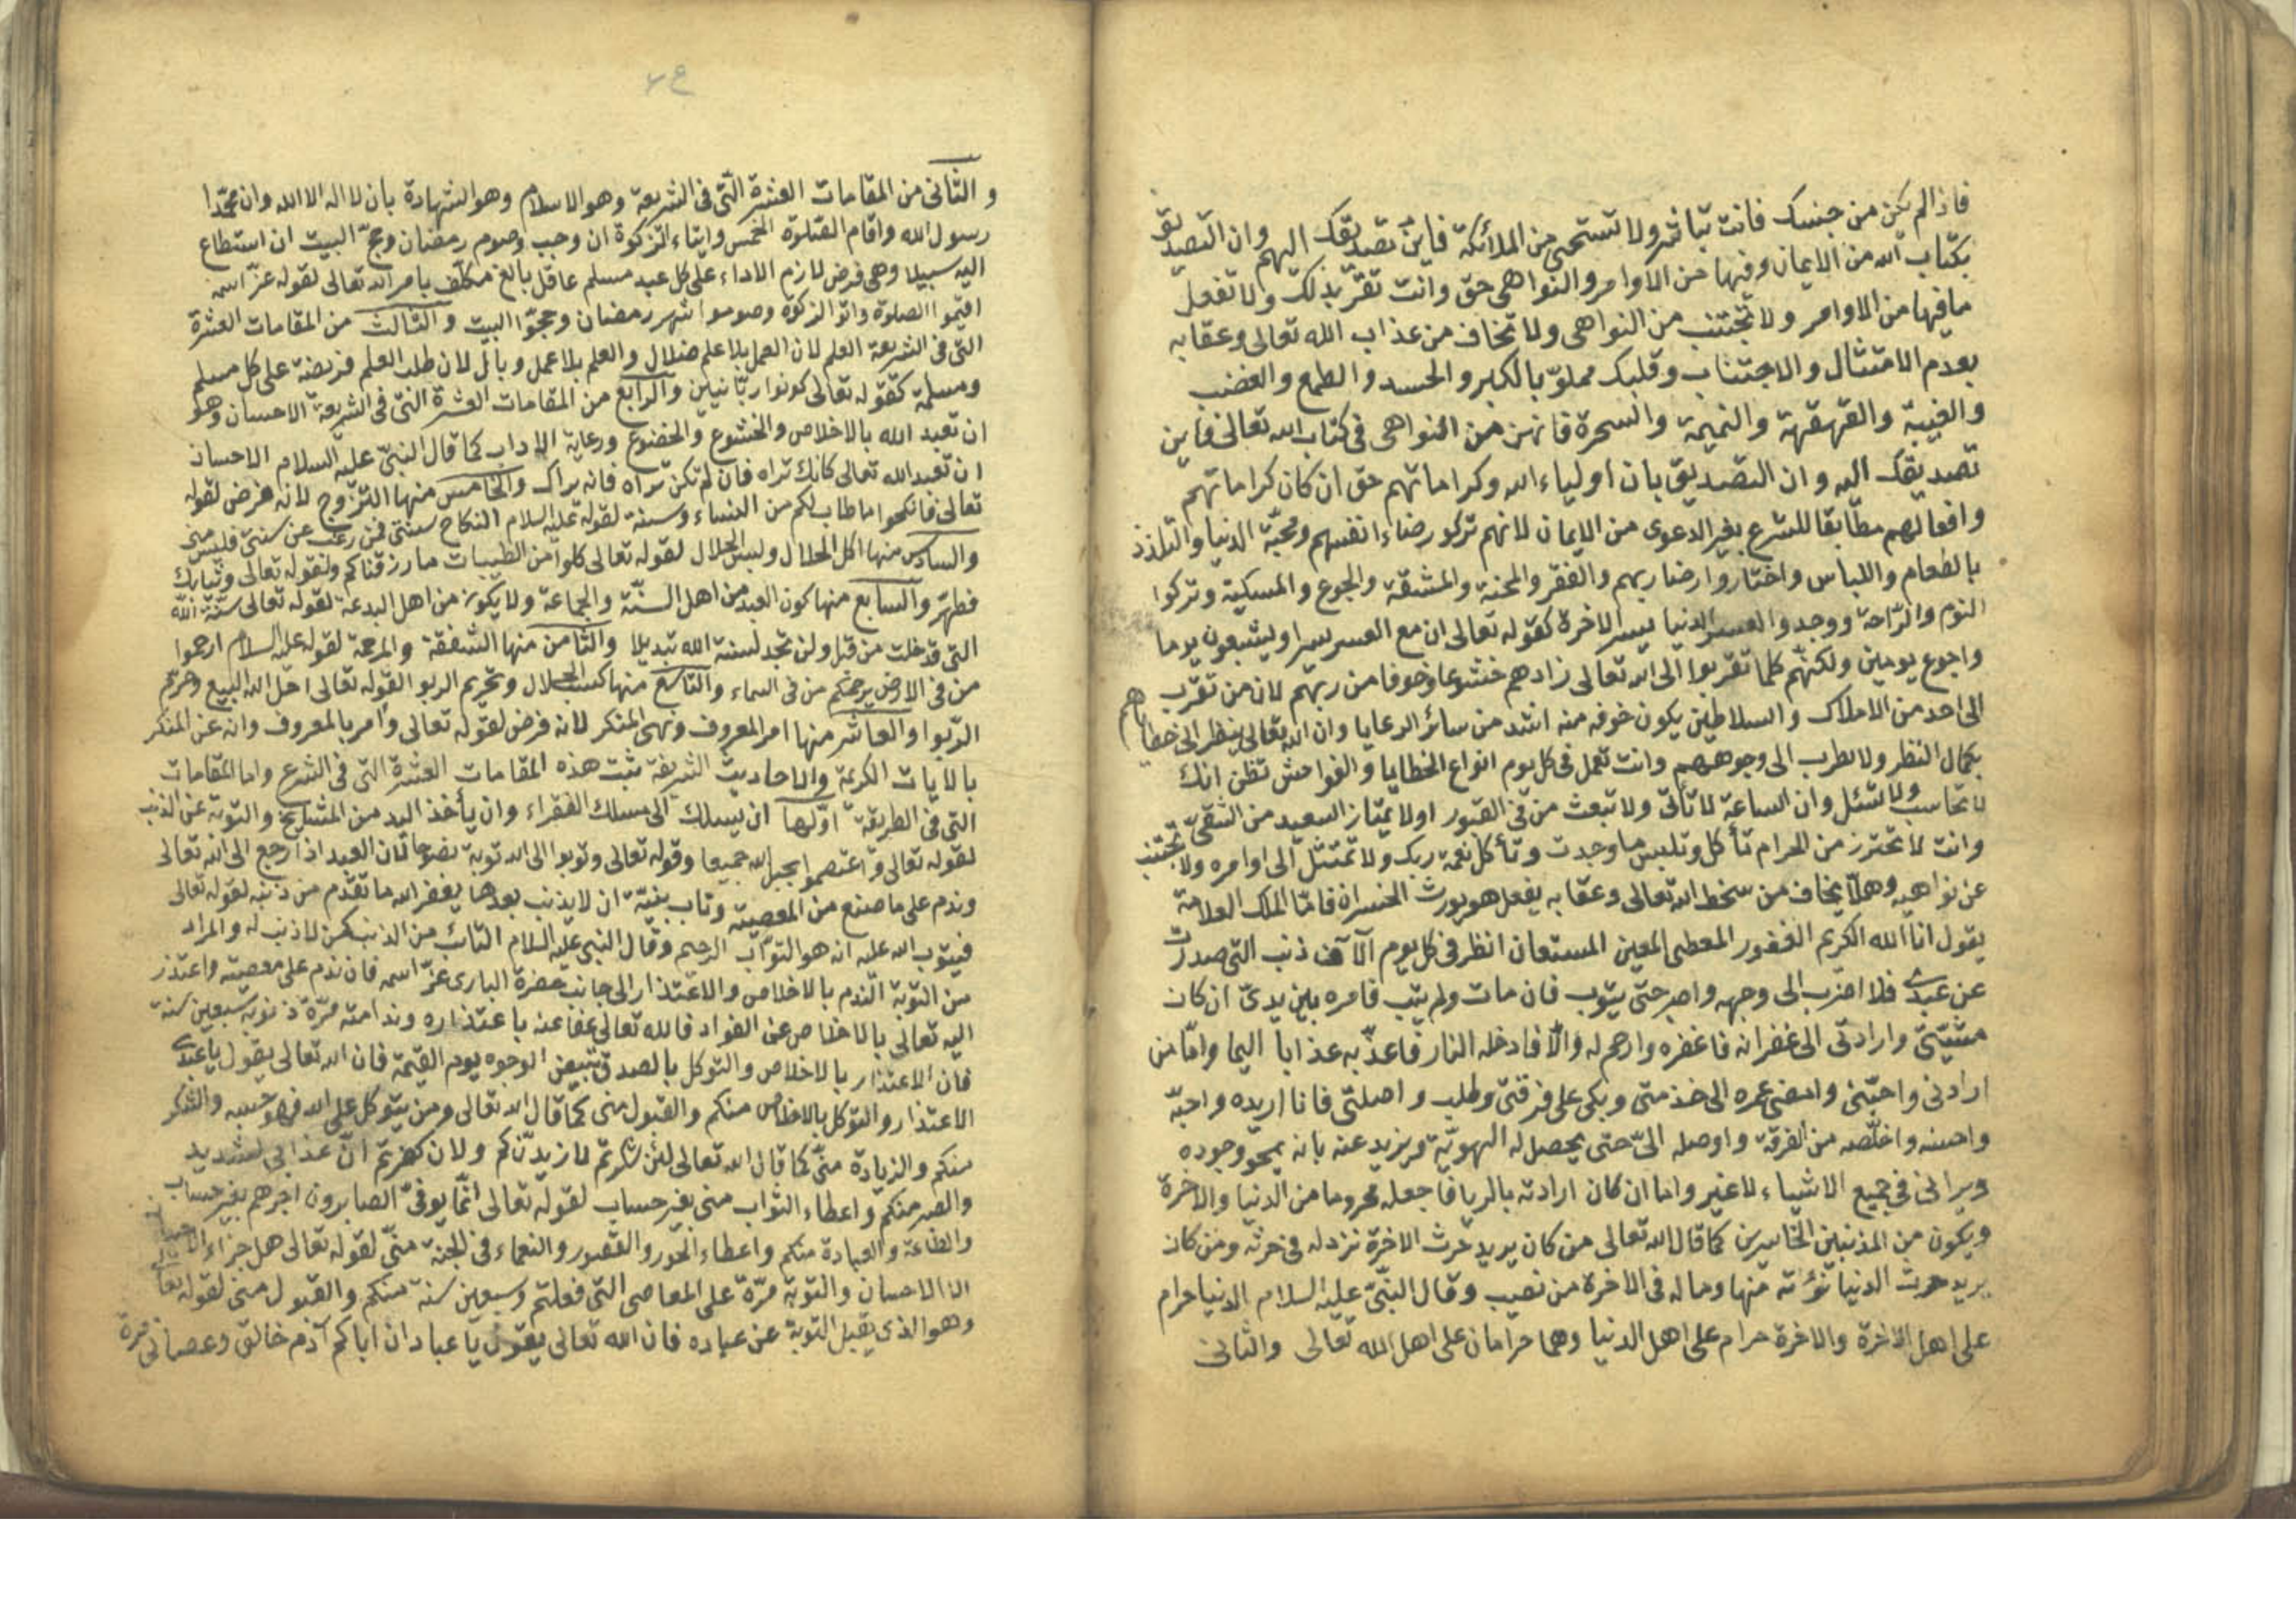 فاذا لم يكن من جنسك فانت تباشر ولا تستحيي من الملائكة فاين تصديقك اليهم وان التصديق
بكتاب الله من الايمان وفيها من الاوامر والنواهى حق وانت تقرّ بذلك ولا تفعل
ما فيها من الاوامر ولا تجتنب من النواهى ولا تخاف من عذاب الله تعالى وعقابه
بعدم الامتثال والاجتناب وقلبك مملوّ بالكبر والحسد والطمع والغضب
والغيبة والقهقهة والنميمة والسحرة فانهن من النواهى فى كتاب الله تعالى فاين
تصديقك اليه وان التصديق بان اولياء الله وكراماتهم حق ان كان كراماتهم
وافعالهم مطابقا للشرع بغير الدعوى من الايمان لانهم تركو رضاء انفسهم ومحبّة الدنيا والتلذذ
بالطعام واللباس واختاروا رضا ربهم والفقر والمحنة والمشقة والجوع والمسكنة وتركوا
النوم والرّاحة ووجدوا العسر الدنيا يسر الاخرة كقوله تعالى ان مع العسر يسرا ويشبعون يوما
واجوع يومين ولكنهم كلما تقربوا الى الله تعالى زادهم خشوعا وخوفا من ربهم لان من تقرّب
الى احد من الاملاك والسلاطين يكون خوفه منه اشد من سائر الرعايا وان الله تعالى ينظر الى خطاياهم
بكمال النظر ولا يطرب الى وجوههم وانت تعمل فى كل يوم انواع الخطايا والفواحش تظن انك
لا تحاسب ولا تسئل وان الساعة لا تأتى ولا تبعث من فى القبور اولا يمتاز السعيد من الشقىّ
وانت لا تحترز من الحرام تأكل وتلبس ما وجدت وتأكل نعمة ربك ولا تمتثل الى اوامره ولا تجتنب
عن نواهيه وهلّا يخاف من سخط الله تعالى وعقابه يفعل هو يورث الخسران فامّا الملك العلامة
يقول انا الله الكريم الغفور المعطى المعين المستعان انظر فى كل يوم الآف ذنب التى صدرت
عن عبدى فلا اضرب الى وجهه واصبر حتى يتوب فان مات ولم يتب فامره بين يدىّ ان كان
مشيّتى وارادتى الى غفرانه فاغفره وارحم له والّا فادخله النار فاعذّبه عذابا اليما وامّا من
ارادنى واحبّنى وامضى عمره الى خدمتى وبكى على فرقتى وطلب واصلتى فانا اريده واحبّه
واحسنه واخلّصه من الفرقة واوصله الىّ حتى يحصل له الهويّة ويزيد عنه بانه يمحو وجوده
ويرانى فى جميع الاشياء لا غير واما ان كان ارادته بالريا فاجعله محروما من الدنيا والاخرة
ويكون من المذنبين الخاسرين كما قال الله تعالى من كان يريد حرث الاخرة نزد له فى حرثه ومن كان
يريد حرث الدنيا نؤته منها وما له فى الاخرة من نصيب وقال النبىّ عليه السلام الدنيا حرام
على اهل الاخرة والاخرة حرام على اهل الدنيا وهما حرامان على اهل الله تعالى والثانى
والثانى من المقامات العشرة التى فى الشريعة وهو الاسلام وهو الشهادة بان لا اله الا الله وان محمّدا
رسول الله واقام الصّلوة الخمس وايتاء الزكوة ان وجب وصوم رمضان وحجّ البيت ان استطاع
اليه سبيلا وهى فرض لازم الاداء على كل عبد مسلم عاقل بالغ مكلّف بامر الله تعالى لقوله عزّ اسمه
اقيموا الصلوة واتوا الزكوة وصوموا شهر رمضان وحجّوا البيت والثالث من المقامات العشرة
التى فى الشريعة العلم لان العمل بلا علم ضلال والعلم بلا عمل وبال لان طلب العلم فريضة على كل مسلم
ومسلمة كقوله تعالى كونوا ربّانيين والرابع من المقامات العشرة التى فى الشريعة الاحسان وهو
ان تعبد الله بالاخلاص والخشوع والخضوع ورعاية الاداب كما قال النبىّ عليه السلام الاحسان
ان تعبد الله تعالى كانك تراه فان لم تكن تراه فانه يراك والخامس منها التزوج لانه فرض لقوله
تعالى فانكحوا ما طاب لكم من النساء وسنة لقوله عليه السلام النكاح سنتى فمن رغب عن سنتى فليس منى
والسادس منها اكل الحلال ولبس الحلال لقوله تعالى كلوا من الطيبات ما رزقناكم ولقوله تعالى وثيابك
فطهّر والسابع منها كون العبد من اهل السنّة والجماعة ولا يكون من اهل البدعة لقوله تعالى سنّة الله
التى قد خلت من قبل ولن تجد لسنة الله تبديلا والثامن منها الشفقة والمرحمة لقوله عليه السلام ارحموا
من فى الارض يرحمكم من فى السماء والتاسع منها كسب الحلال وتحريم الربو لقوله تعالى احلّ الله البيع وحرّم
الرّبوا والعاشر منها امر المعروف ونهى المنكر لانه فرض لقوله تعالى وأمر بالمعروف وانه عن المنكر
بالايات الكريمة والاحاديث الشريفة ثبت هذه المقامات العشرة التى فى الشرع واما المقامات
التى فى الطريقة اوّلها ان يسلك الى مسلك الفقراء وان يأخذ اليد من المشايخ والتوبة عن الذنب
لقوله تعالى واعتصموا بحبل الله جميعا وقوله تعالى وتوبوا الى الله توبة نصوحا لان العبد اذا رجع الى الله تعالى
وندم على ما صنع من المعصية وتاب بنيّة ان لا يذنب بعدها يغفر الله ما تقدّم من ذنبه لقوله تعالى
فيتوب الله عليه انه هو التوّاب الرحيم وقال النبى عليه السلام التائب من الذنب كمن لا ذنب له والمراد
من التوبة الندم بالاخلاص والاعتذار الى جانب حضرة البارى عزّ اسمه فان ندم على معصيته واعتذر
اليه تعالى بالاخلاص عن الفواد فالله تعالى عفا عنه باعتذاره وندامته مرّة ذنوبه سبعين سنة
فان الاعتذار بالاخلاص والتوكل بالصدق تبيض الوجوه يوم القيمة فان الله تعالى يقول يا عبدى
الاعتذار والتوكل بالاخلاص منكم والقبول منى كما قال الله تعالى ومن يتوكل على الله فهو حسبه والشكر
منكم والزيادة منّى كما قال الله تعالى لئن شكرتم لازيدنّكم ولان كفرتم انّ عذابى لشديد
والصبر منكم واعطاء الثواب منى بغير حساب لقوله تعالى انّما يوفّى الصابرون اجرهم بغير حساب
والطاعة والعبادة منكم واعطاء الحور والقصور والنعماء فى الجنة منّى لقوله تعالى هل جزاء الاحسان
الا الاحسان والتوبة مرّة على المعاصى التى فعلتم وسبعين سنة منكم والقبول منى لقوله تعالى
وهو الذى يقبل التوبة عن عباده فان الله تعالى يقول يا عباد ان اباكم آدم خالق وعصانى مرة